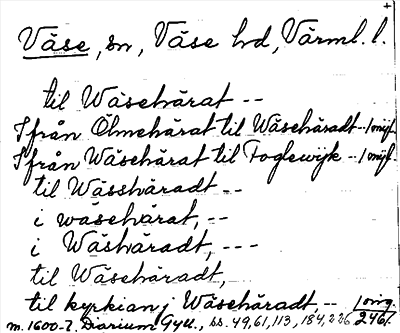 Väse, sn, Väse hd, Värml. l.
til Wäsehärat --
Ifrån Ölmehärat til Wäsehäradt -- 1 mijl.
Ifrån Wäsehärat til Foglewijk -- 1 mijl.
til Wässhäradt --
i wäsehärat, --
i Wäshäradt, ---
til Wäsehäradt,
til kyrkian j Wäsehäradt, -- 1 orig.
m. 1600-t. Diarium Gyll., ss. 49, 61, 113, 184, 226 246.